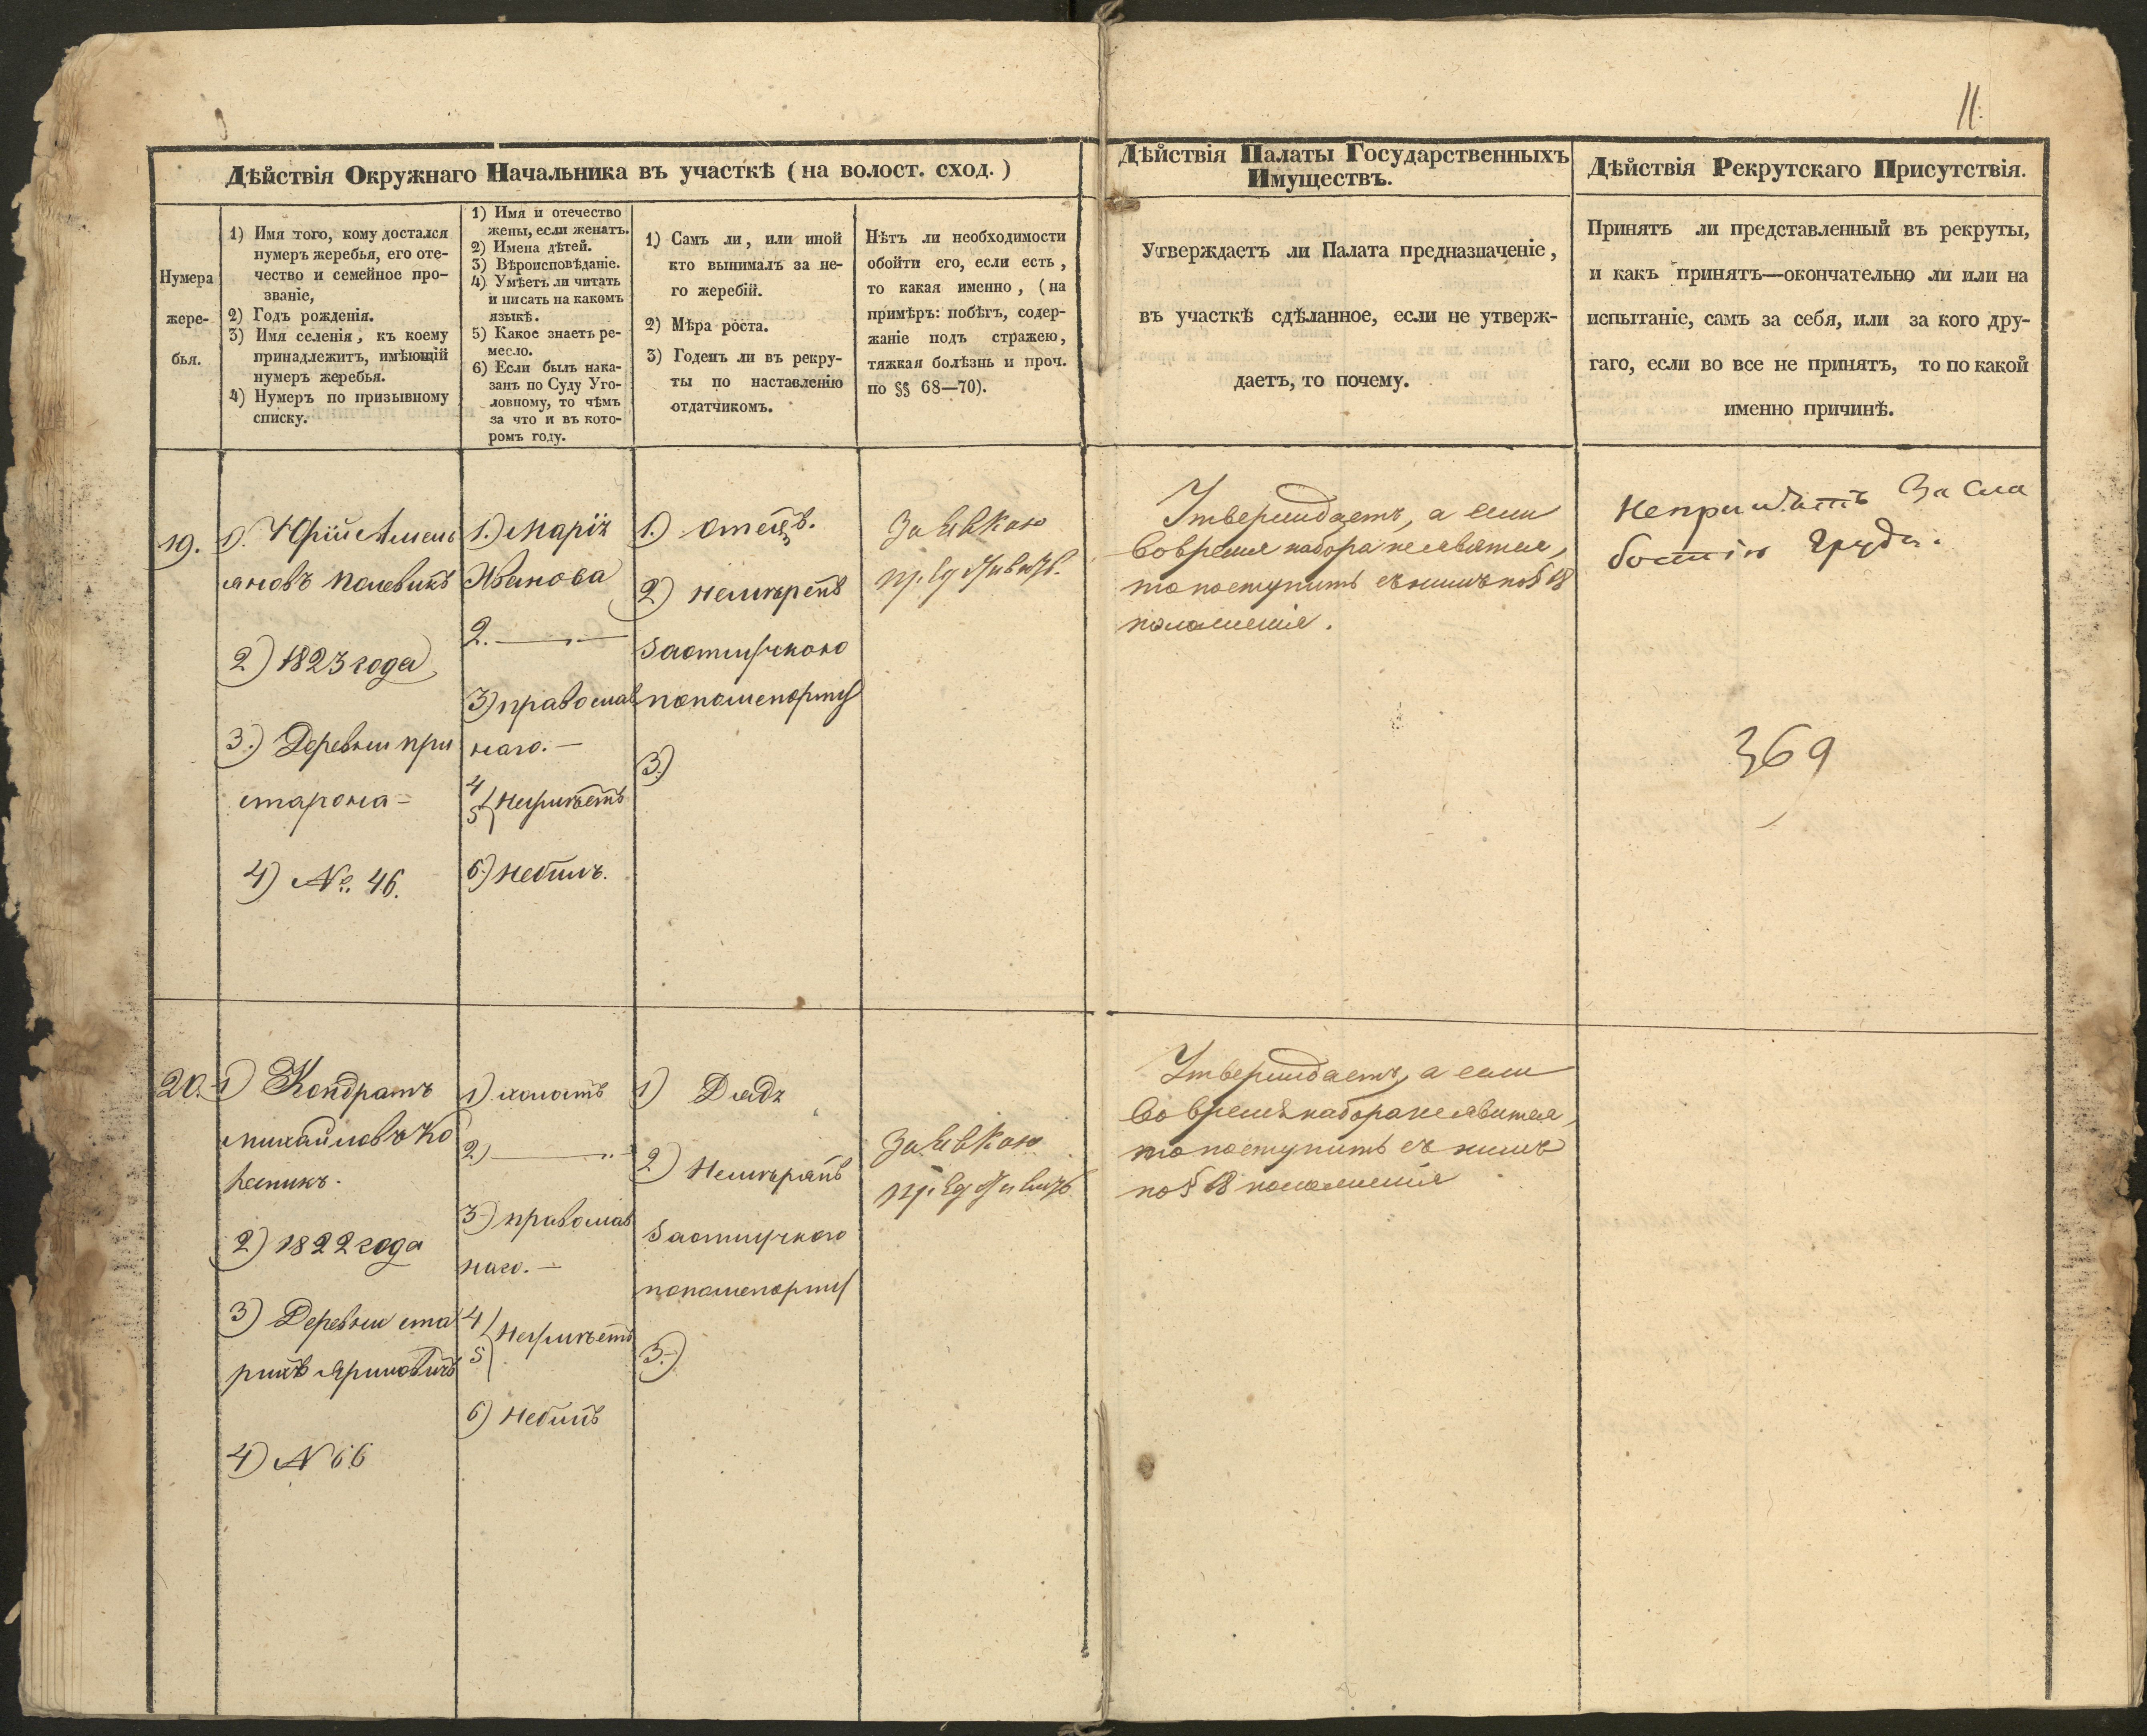 11.
Дѣйствія Окружнаго Начальника въ участкѣ (на волост. сход.)
Нумера
жере-
бья.
1) Имя того, кому достался
нумеръ жеребья, его оте-
чество и семейное про-
званіе,
2) Годъ рожденія.
3) Имя селенія, къ коему
принадлежитъ, имѣющій
нумеръ жеребья.
4) Нумеръ по призывному
списку.
1) Имя и отечество
жены, если женатъ.
2) Имена дѣтей.
3) Вѣроисповѣданіе.
4) Умѣетъ ли читать
и писать на какомъ
языкѣ.
5) Какое знаетъ ре-
месло.
6) Если былъ нака-
занъ по Суду Уго-
ловному, то чѣмъ
за что и въ кото-
ромъ году.
1) Самъ ли, или иной
кто вынималъ за не-
го жеребій.
2) Мѣра роста.
3) Годенъ ли въ рекру-
ты по наставленію
отдатчикомъ.
Нѣтъ ли необходимости
обойти его, если есть,
то какая именно, (на
примѣръ: побѣгъ, содер-
жаніе подъ стражею,
тяжкая болѣзнь и проч.
по §§ 68—70).
Дѣйствія Палаты Государственныхъ
Имуществъ.
Утверждаетъ ли Палата предназначеніе,
въ участкѣ сдѣланное, если не утверж-
даетъ, то почему.
Дѣйствія Рекрутскаго Присутствія.
Принятъ ли представленный въ рекруты,
и какъ принятъ—окончательно ли или на
испытаніе, самъ за себя, или за кого дру-
гаго, если во все не принятъ, то по какой
именно причинѣ.
19.
1). Юрій Амель
яновъ Полевикъ
2) 1823 года
3.) Деревни при
старона-
4) №. 46.
1.) Марія
Иванова
2. —
3) православ
наго. —
4
5 } Неумѣетъ
6.) Небылъ.
1.) отецъ.
2) немѣренъ
заотлучкою
попашепорту
3.)
За явкою
Утверждаетъ, а если
во время набора не явится,
то поступить съ нимъ по § 18
положенія.
Непринятъ За сла
бостію груди.
369
20.
1) Кондратъ
Михайловъ Ко
2) 1822 года
3) Деревни ста
рыхъ
4) N 66
1) холостъ
2) —
3) православ
наго. —
4
5 } Неумѣетъ
6) Небылъ
1) Дядя
2) Немѣрянъ
заотлучкою
попашепорту
3.)
За явкою
Утверждаетъ, а если
во время набора не явится,
то поступить съ нимъ
по § 18 положенія